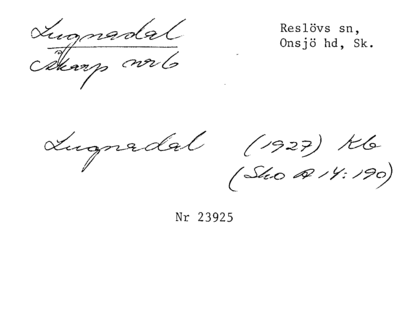 Lugnadal
Reslövs sn,
Onsjö hd, Sk.
Lugnadal (1927) Kb
(Sko A 14:190)
Nr 23925